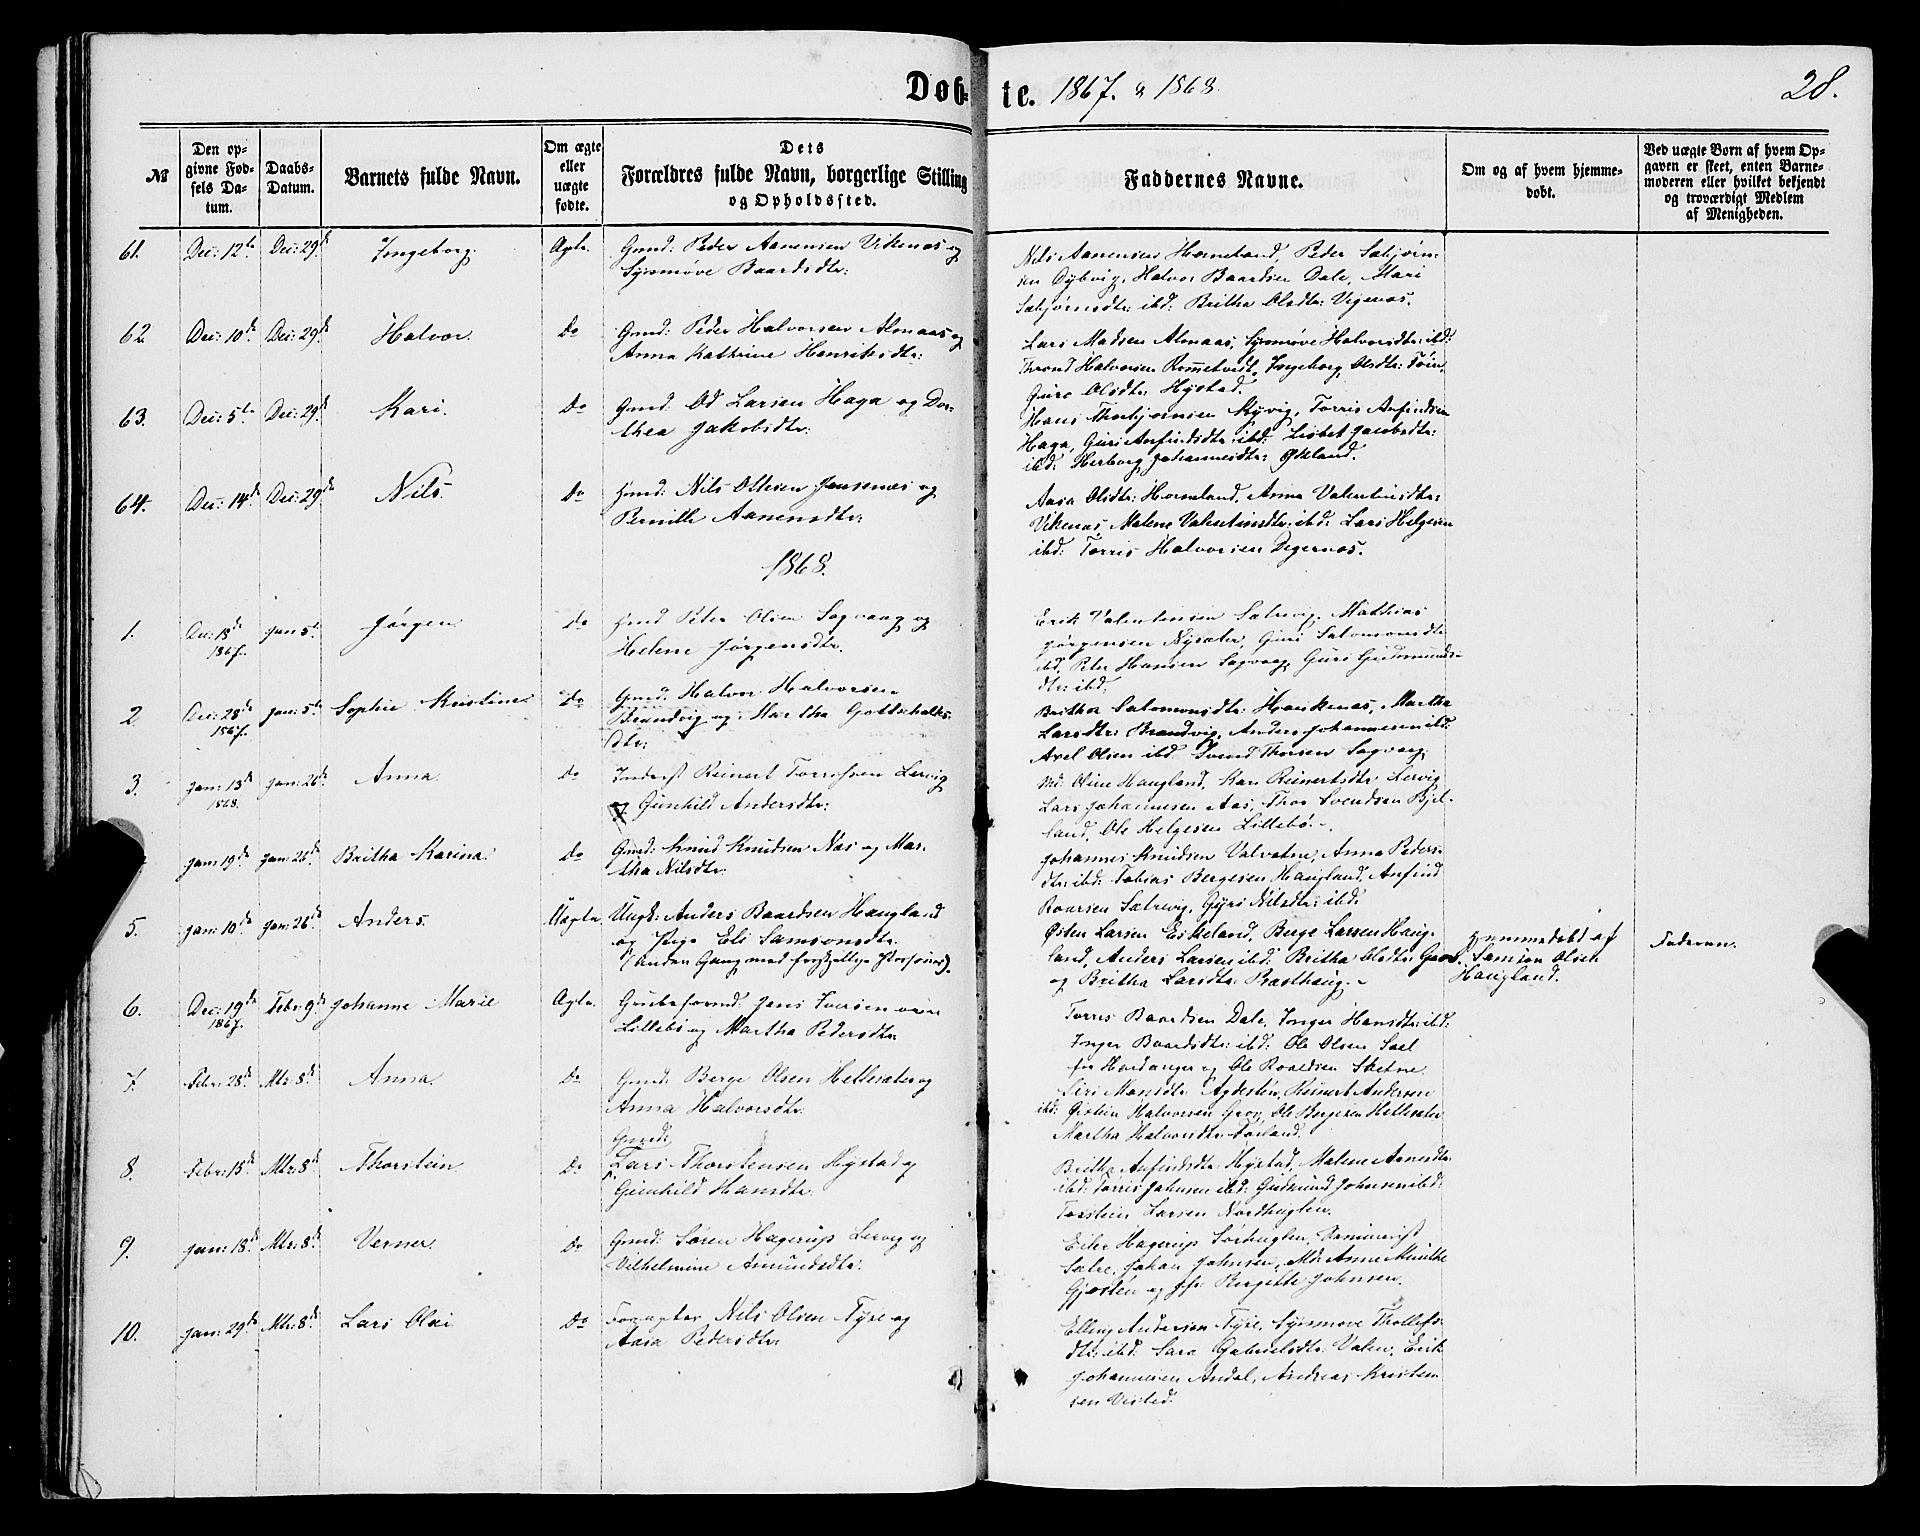 Døbte. 1867. & 1868.
28.
№
Den opgivne Fødsels Datum.
Daabs-Datum.
Barnets fulde Navn.
Om ægte eller uægte fødte.
Dets Forældres fulde Navn, borgerlige Stilling og Opholdssted.
Faddernes Navne.
Om og af hvem hjemmedøbt.
Ved uægte Børn af hvem Opgaven er skeet, enten Barnemoderen eller hvilket bekjendt og troværdigt Medlem af Menigheden.
61. Dec: 12te Dec: 29de Ingeborg. Ægte. Gmd: Peder Aanensen Vikenæs og
Synnøve Baardsdtr:
Nils Aanensen Horneland, Peder Sæbjørn-
sen Dybvig, Halvor Baardsen Dale, Mari
Sæbjørnsdtr: ibd: Britha Olsdtr: Vigenæs.
62. Dec: 10de Dec: 29de Halvor. Do Gmd: Peder Halvorsen Almaas og
Anna Kathrine Henriksdtr:
Lars Madsen Almaas, Synnøve Halvorsdtr: ibd:
Thrond Halvorsen Rommetvedt, Ingeborg Olsdtr:
Guro Olsdtr: Hystad.
63. Dec: 5te Dec: 29de Kari. Do Gmd: Od Larsen Haga og Dor-
thea Jakobsdtr:
Hans Thorbjørnsen Skyvig, Torris Anfindsen
Haga, Guri Anfindsdtr: ibd: Lisbet Jacobsdtr:
ibd: Herborg Johannesdtr: Økland.
64. Dec: 14de Dec: 29de Nils. Do Gmd: Nils Ottesen Jensenæs og
Pernille Aanensdtr:
Aasa Olsdtr: Horneland, Anna Valentinsdtr:
Vikenæs, Malene Valentinsdtr: ibd: Lars Helgesen
ibd: Torris Halvorsen Degernæs.
1868.
1. Dec: 18de 1867. Jan: 5te Jørgen Do Gmd Peter Olsen Sagvaag og
Helene Jørgensdtr.
Erik Valentinsen Sætrevig, Mathias
Jørgensen Nysæter, Guri Salomonsdtr
ibd, Peter Hansen Sagvaag, Guri Gudmunds-
dtr: ibd.
2. Dec: 28de 1867. Jan: 5te Sophie Kristine Do Gmd: Halvor Halvorsen
Brandvig og Martha Gottschalks-
dtr:
Britha Salomonsdtr: Martha
Larsdtr: Brandvig, Anders Johannesen ibd:
Axel Olsen ibd Svend Thorsen Sagvaag.
3. Jan: 13de 1868. Jan: 26de Anna. Do Inderst Reinert Lervig
og Gunhild Andersdtr:
Md: Oline Haugland, Kari Reinertsdtr Lervig
Lars Johannesen Aas, Thor Svendsen Bjel-
land, Ole Helgesen Lillebø.
Jan: 19de Jan: 26de Britha Karina. Do Gmd: Knud Knudsen Næs og Mar-
tha Nilsdtr:
Johannes Knudsen Valvatne, Anna Peders-
dtr: ibd: Tobias Bergesen Haugland, Anfind
Roarsen Sætrevig, Gyri Nilsdtr: ibd:
5. Jan: 10de Jan: 26de Anders. Uægte Ungk: Anders Baardsen Haugland
og Pige Eli Samsonsdtr.
(Anden Gang med forskjellige Personer).
Østen Larsen Eskeland, Berge Larsen Haug-
land, Anders Larsen ibd: Britha Olsdtr: Grov.
og Britha Larsdtr: Præsthaug.
Hjemmedøbt af
Samson Olsen
Haugland.
Faderen.
6. Dec: 19de 1867. Febr: 9de Johanne Marie Ægte. Grubeformd: Jens Iversen
Lillebø og Martha Pedersdtr:
Torris Baardsen Dale, Inger Hansdtr: ibd:
Inger Baardsdtr: ibd: Ole Olsen Sæl
fra Hardanger og Ole Roaldsen Sletne.
7. Febr: 28de Mts: 8de Anna. Do Gmd: Berge Olsen Hellesæter og
Anna Halvorsdtr.
Siri Monsdtr Agdestén, Reinert Andersen
ibd: Øistein Halvorsen Grov, Ole Bergesen Hellesæter
Martha Halvorsdtr
8. Febr: 15de Mts: 8de Thorstein Do Gmd:
Lars Thorstensen Hystad og
Gunhild Hansdtr.
Britha Anfindsdtr: Hystad, Malene
ibd: Torris Johnsen ibd: Gudmund Johnsen ibd:
Torstein Larsen Nordhuglen.
9. Jan: 18de Mts: 8de Verner. Do Gmd: Søren Hagerup Lervig og
Vilhelmine Amundsdtr.
Eiler Hagerup Sørhuglen,
Sætre, Johan Johnsen, Md: Anne Munthe
Gjøstén og Bergitte Johnsen.
10. Jan: 29de Mts: 8de Lars Olai Do Forpagter Nils Olsen Tyse og
Aasa Pedersdtr:
Elling Andersen Tyse, Synnøve Thollefs-
dtr: ibd: Sara Gabrielsdtr: Valen, Erik
Johannesen Andal, Andreas Kristen-
sen Vested.